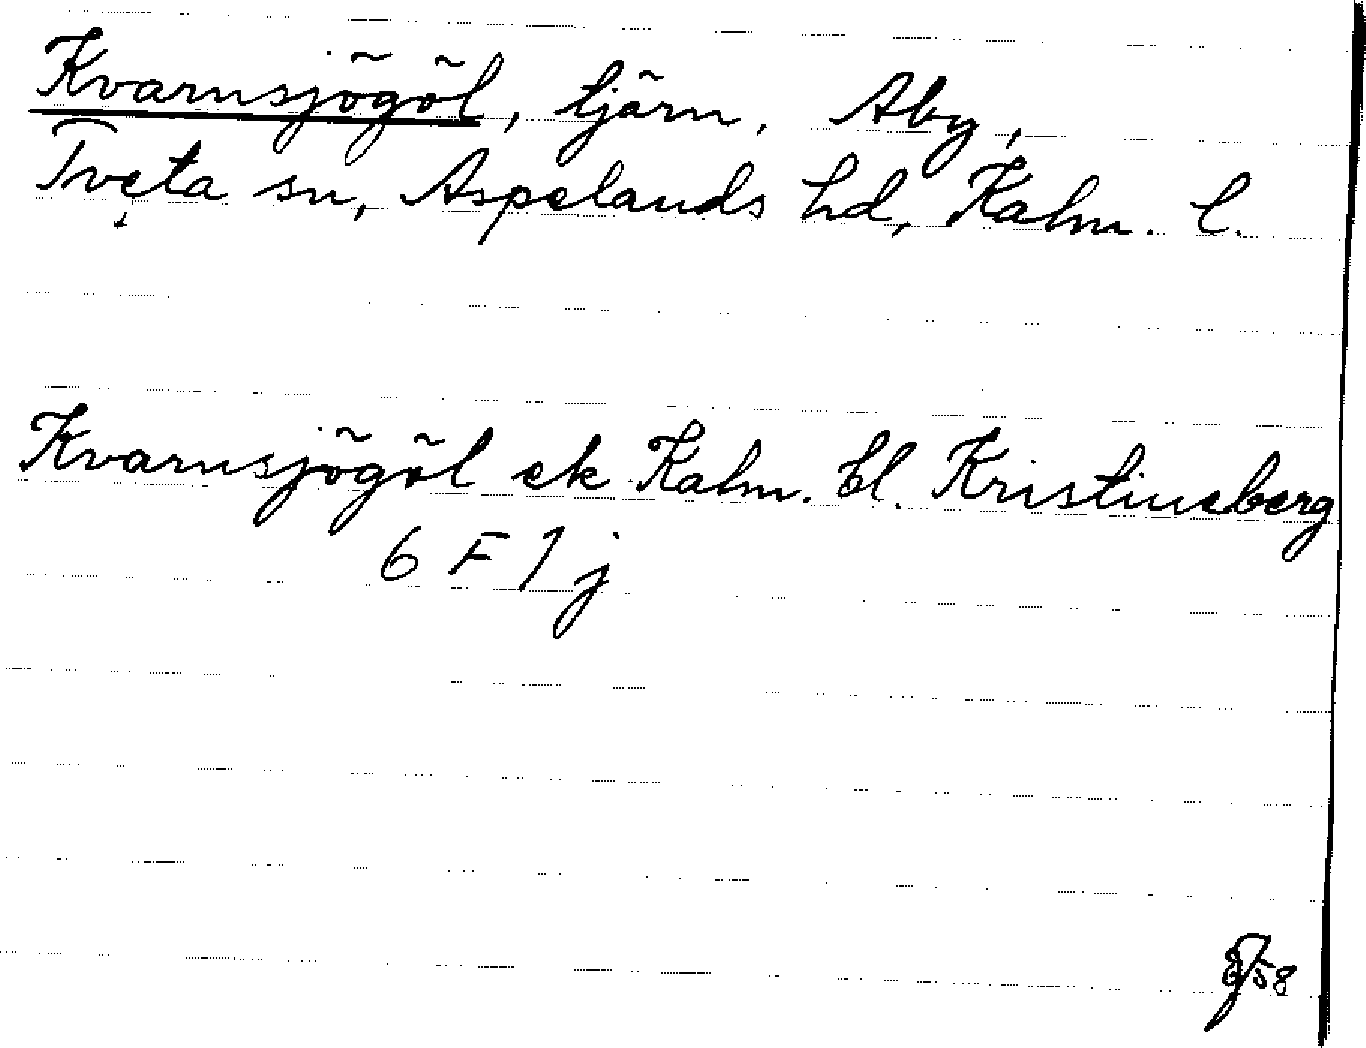 Kvarnsjögöl, tjärn, Åby,
Tveta sn, Aspelands hd, Kalm. l.
Kvarnsjögöl ek Kalm. bl. Kristineberg
6 F 1 j
58